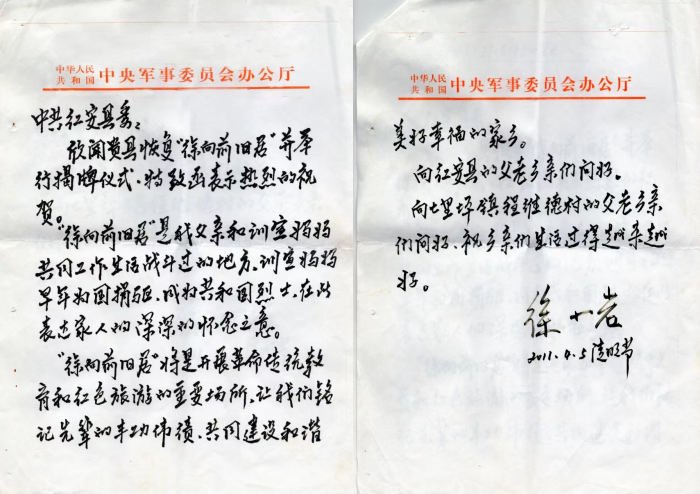 中华人民共和国 中央军事委员会办公厅
中共红安县委：
欣闻贵县恢复“徐向前旧居”并举
行揭牌仪式，特致函表示热烈的祝
贺。
“徐向前旧居”是我父亲和训宣妈妈
共同工作生活战斗过的地方，训宣妈妈
早年为国捐躯，成为共和国烈士，在此
表达家人的深深的怀念之意。
“徐向前旧居”将是开展革命传统教
育和红色旅游的重要场所，让我们铭
记先辈的丰功伟绩，共同建设和谐
中华人民共和国 中央军事委员会办公厅
美好幸福的家乡。
向红安县的父老乡亲们问好。
向七里坪镇程维德村的父老乡亲
们问好，祝乡亲们生活过得越来越
好。
徐小岩
2011.4.5清明节